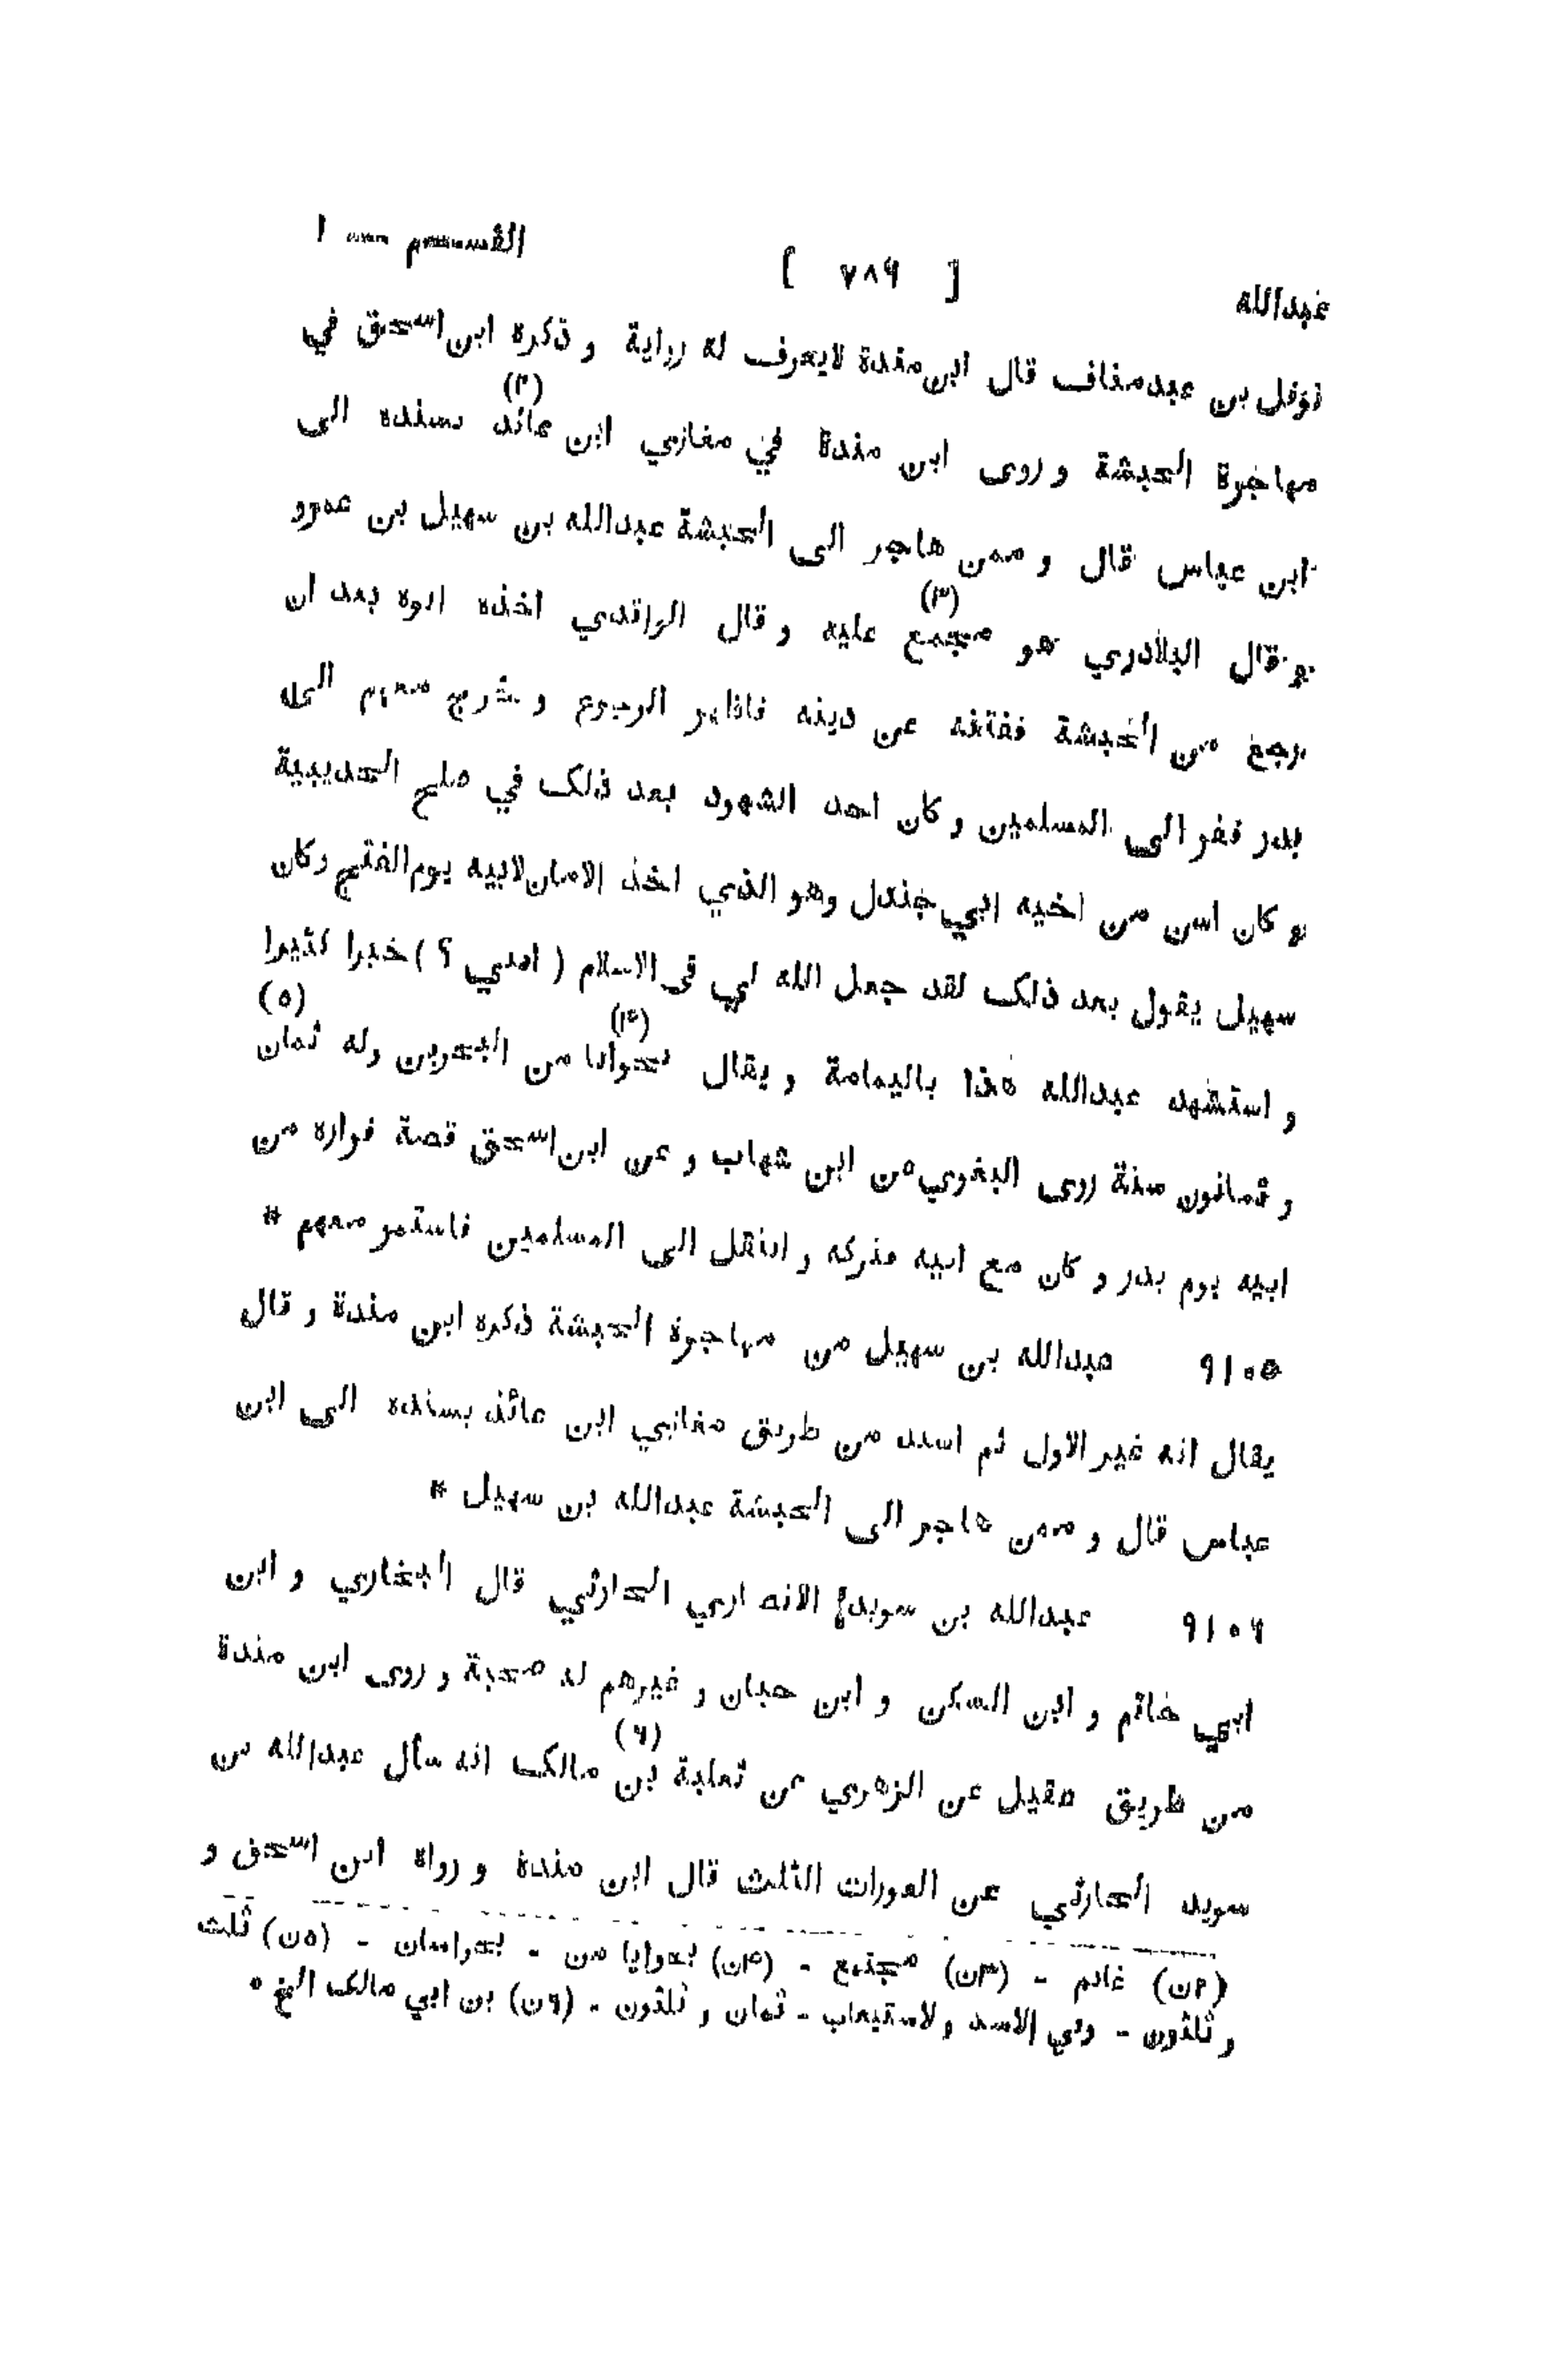 عبدالله [ ٧٨٩ ] القسم — ١
نوفل بن عبدمناف قال ابن مندة لايعرف له رواية و ذكره ابن اسحق في
مهاجرة الحبشة و روى ابن مندة في مغازي ابن عائد (٢) بسنده الى
ابن عباس قال و ممن هاجر الى الحبشة عبدالله بن سهيل بن عمرو
و قال البلاذري هو مجمع (٣) عليه و قال الواقدي اخذه ابوه بعد ان
رجع من الحبشة ففتنه عن دينه فاظهر الرجوع و خرج معهم الى
بدر ففر الى المسلمين و كان احد الشهود بعد ذلك في صلح الحديبية
و كان اسن من اخيه ابي جندل وهو الذي اخذ الامان لابيه يوم الفتح وكان
سهيل يقول بعد ذلك لقد جعل الله لي في الاسلام ( امني ؟ ) خيرا كثيرا
و استشهد عبدالله هذا باليمامة و يقال بحوانا (۴) من البحرين وله ثمان (٥)
و ثمانون سنة روى البغوي عن ابن شهاب و عن ابن اسحق قصة فراره من
ابيه يوم بدر و كان مع ابيه فتركه و انتقل الى المسلمين فاستمر معهم *
٩١٠٥ عبدالله بن سهيل من مهاجرة الحبشة ذكره ابن مندة و قال
يقال انه غير الاول ثم اسند من طريق مغازي ابن عائذ بسنده الى ابن
عباس قال و ممن هاجر الى الحبشة عبدالله بن سهيل *
٩١٠٦ عبدالله بن سويد الانصاري الحارثي قال البخاري و ابن
ابي حاتم و ابن السكن و ابن حبان و غيرهم له صحبة و روى ابن مندة
من طريق عقيل عن الزهري عن ثعلبة بن (٦) مالك انه سأل عبدالله بن
سويد الحارثي عن العورات الثلث قال ابن مندة و رواه ابن اسحق و
(٢ن) غانم - (٣ن) مجتمع - (۴ن) بحوايا من - بخراسان - (٥ن) ثلث
و ثلثون - وفي الاسد ولاستيعاب - ثمان و ثلثون - (٦ن) بن ابي مالك الخ *